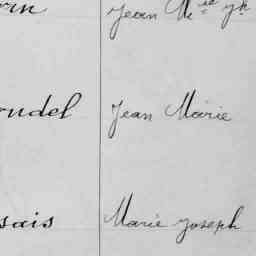 orn Jean M ie Jh
oudel Jean Marie
sais Marie Joseph